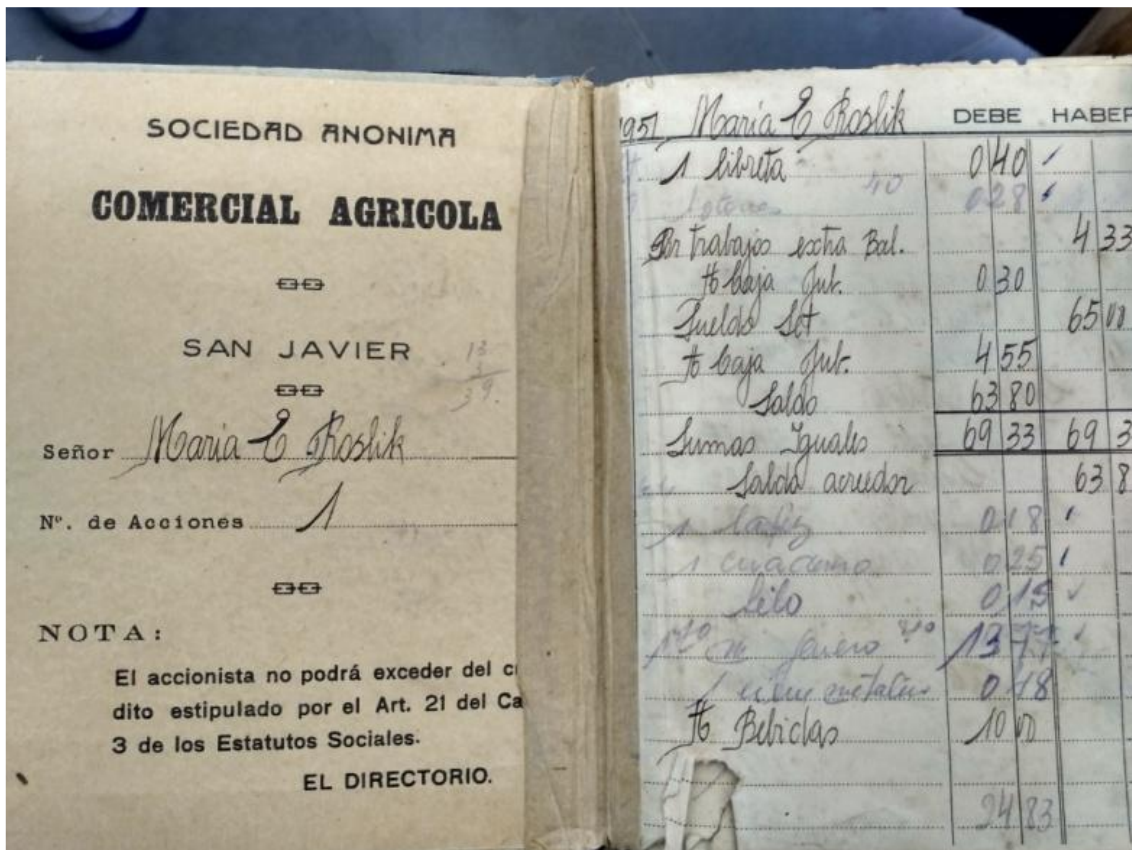 SOCIEDAD ANONIMA
COMERCIAL AGRICOLA
SAN JAVIER
13
39.
Señor Maria E Roslik
Nº. de Acciones 1
NOTA:
El accionista no podrá exceder del c
dito estipulado por el Art. 21 del Ca
3 de los Estatutos Sociales.
EL DIRECTORIO.
1951 Maria E Roslik DEBE HABER
1 libreta 0 40
40 0 28
Por trabajos extra Bal. 4 33
Caja Jub. 0 30
Sueldo Set 65 00
Caja Jub. 4 55
Saldo 63 80
Sumas Iguales 69 33 69 3
Saldo acreedor 63 8
1 lapiz 0 18
1 cuaderno 0 25
0 15
13 77
1 0 48
Bebidas 10 00
24 83